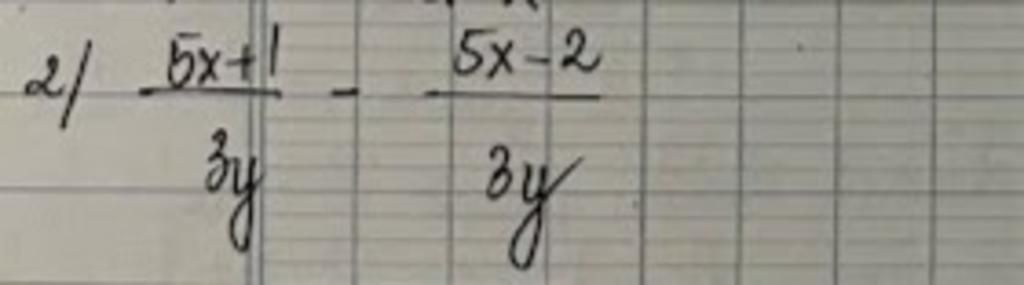 2/ \frac{5x+1}{3y} - \frac{5x-2}{3y}